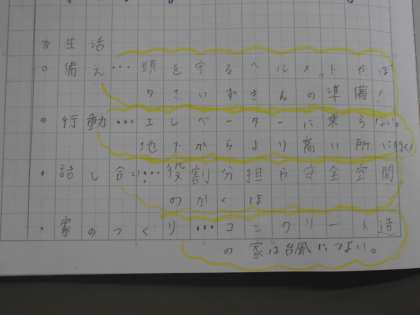 生活
備え…頭を守るヘルメットかば
行動…エレベーターに乗らない。
地下からより高い所に行く
話し合い…役割分担や安全空間
のかくほ
家のつくり…コンクリート造
の家は台風につよい。